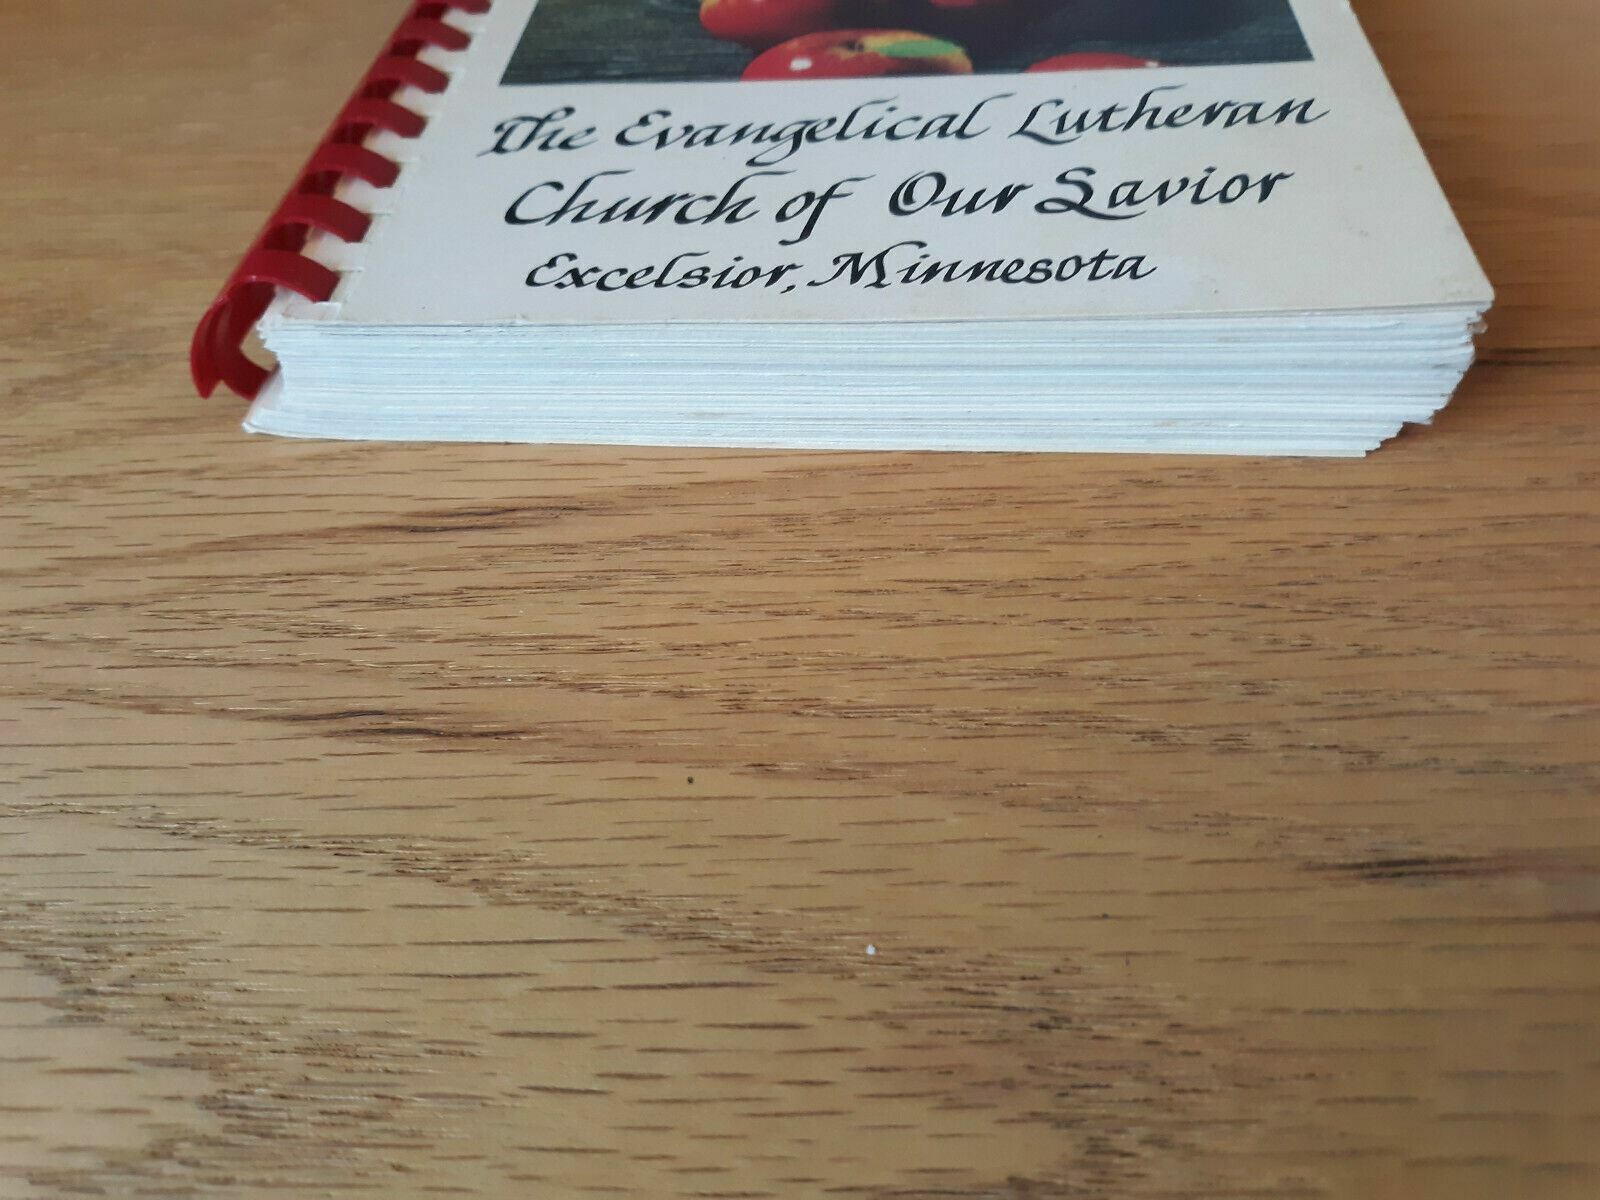 The Evangelical Lutheran
Church of Our Savior
Excelsior, Minnesota